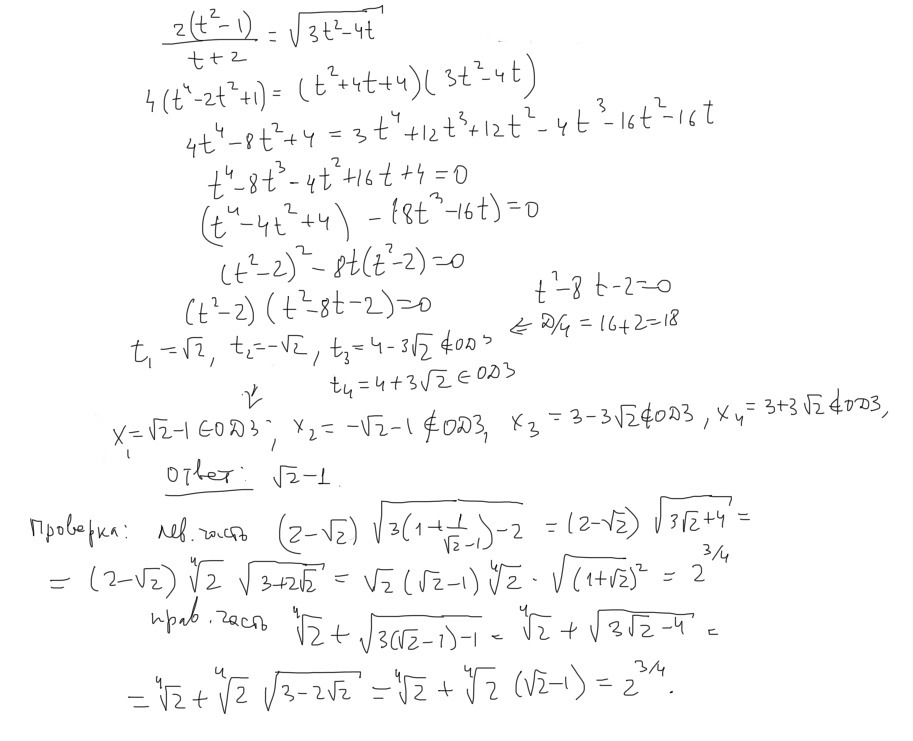 2(t²-1)/(t+2) = √(3t²-4t)
4(t⁴-2t²+1) = (t²+4t+4)(3t²-4t)
4t⁴-8t²+4 = 3t⁴+12t³+12t²-4t³-16t²-16t
t⁴-8t³-4t²+16t+4=0
(t⁴-4t²+4) - (8t³-16t)=0
(t²-2)² - 8t(t²-2)=0
(t²-2)(t²-8t-2)=0
t²-8t-2=0
t₁=√2, t₂=-√2, t₃=4-3√2 ∉ ОДЗ ⇐ D/4=16+2=18
t₄=4+3√2 ∈ ОДЗ
⇓
x₁=√2-1 ∈ ОДЗ; x₂=-√2-1 ∉ ОДЗ, x₃=3-3√2 ∉ ОДЗ, x₄=3+3√2 ∉ ОДЗ,
Ответ: √2-1.
Проверка: лев. часть (2-√2) √(3(1+1/(√2-1))-2) = (2-√2) √(3√2+4) =
= (2-√2) ⁴√2 √(3+2√2) = √2(√2-1) ⁴√2 · √((1+√2)²) = 2^(3/4)
прав. часть ⁴√2 + √(3(√2-1)-1) = ⁴√2 + √(3√2-4) =
= ⁴√2 + ⁴√2 √(3-2√2) = ⁴√2 + ⁴√2 (√2-1) = 2^(3/4).